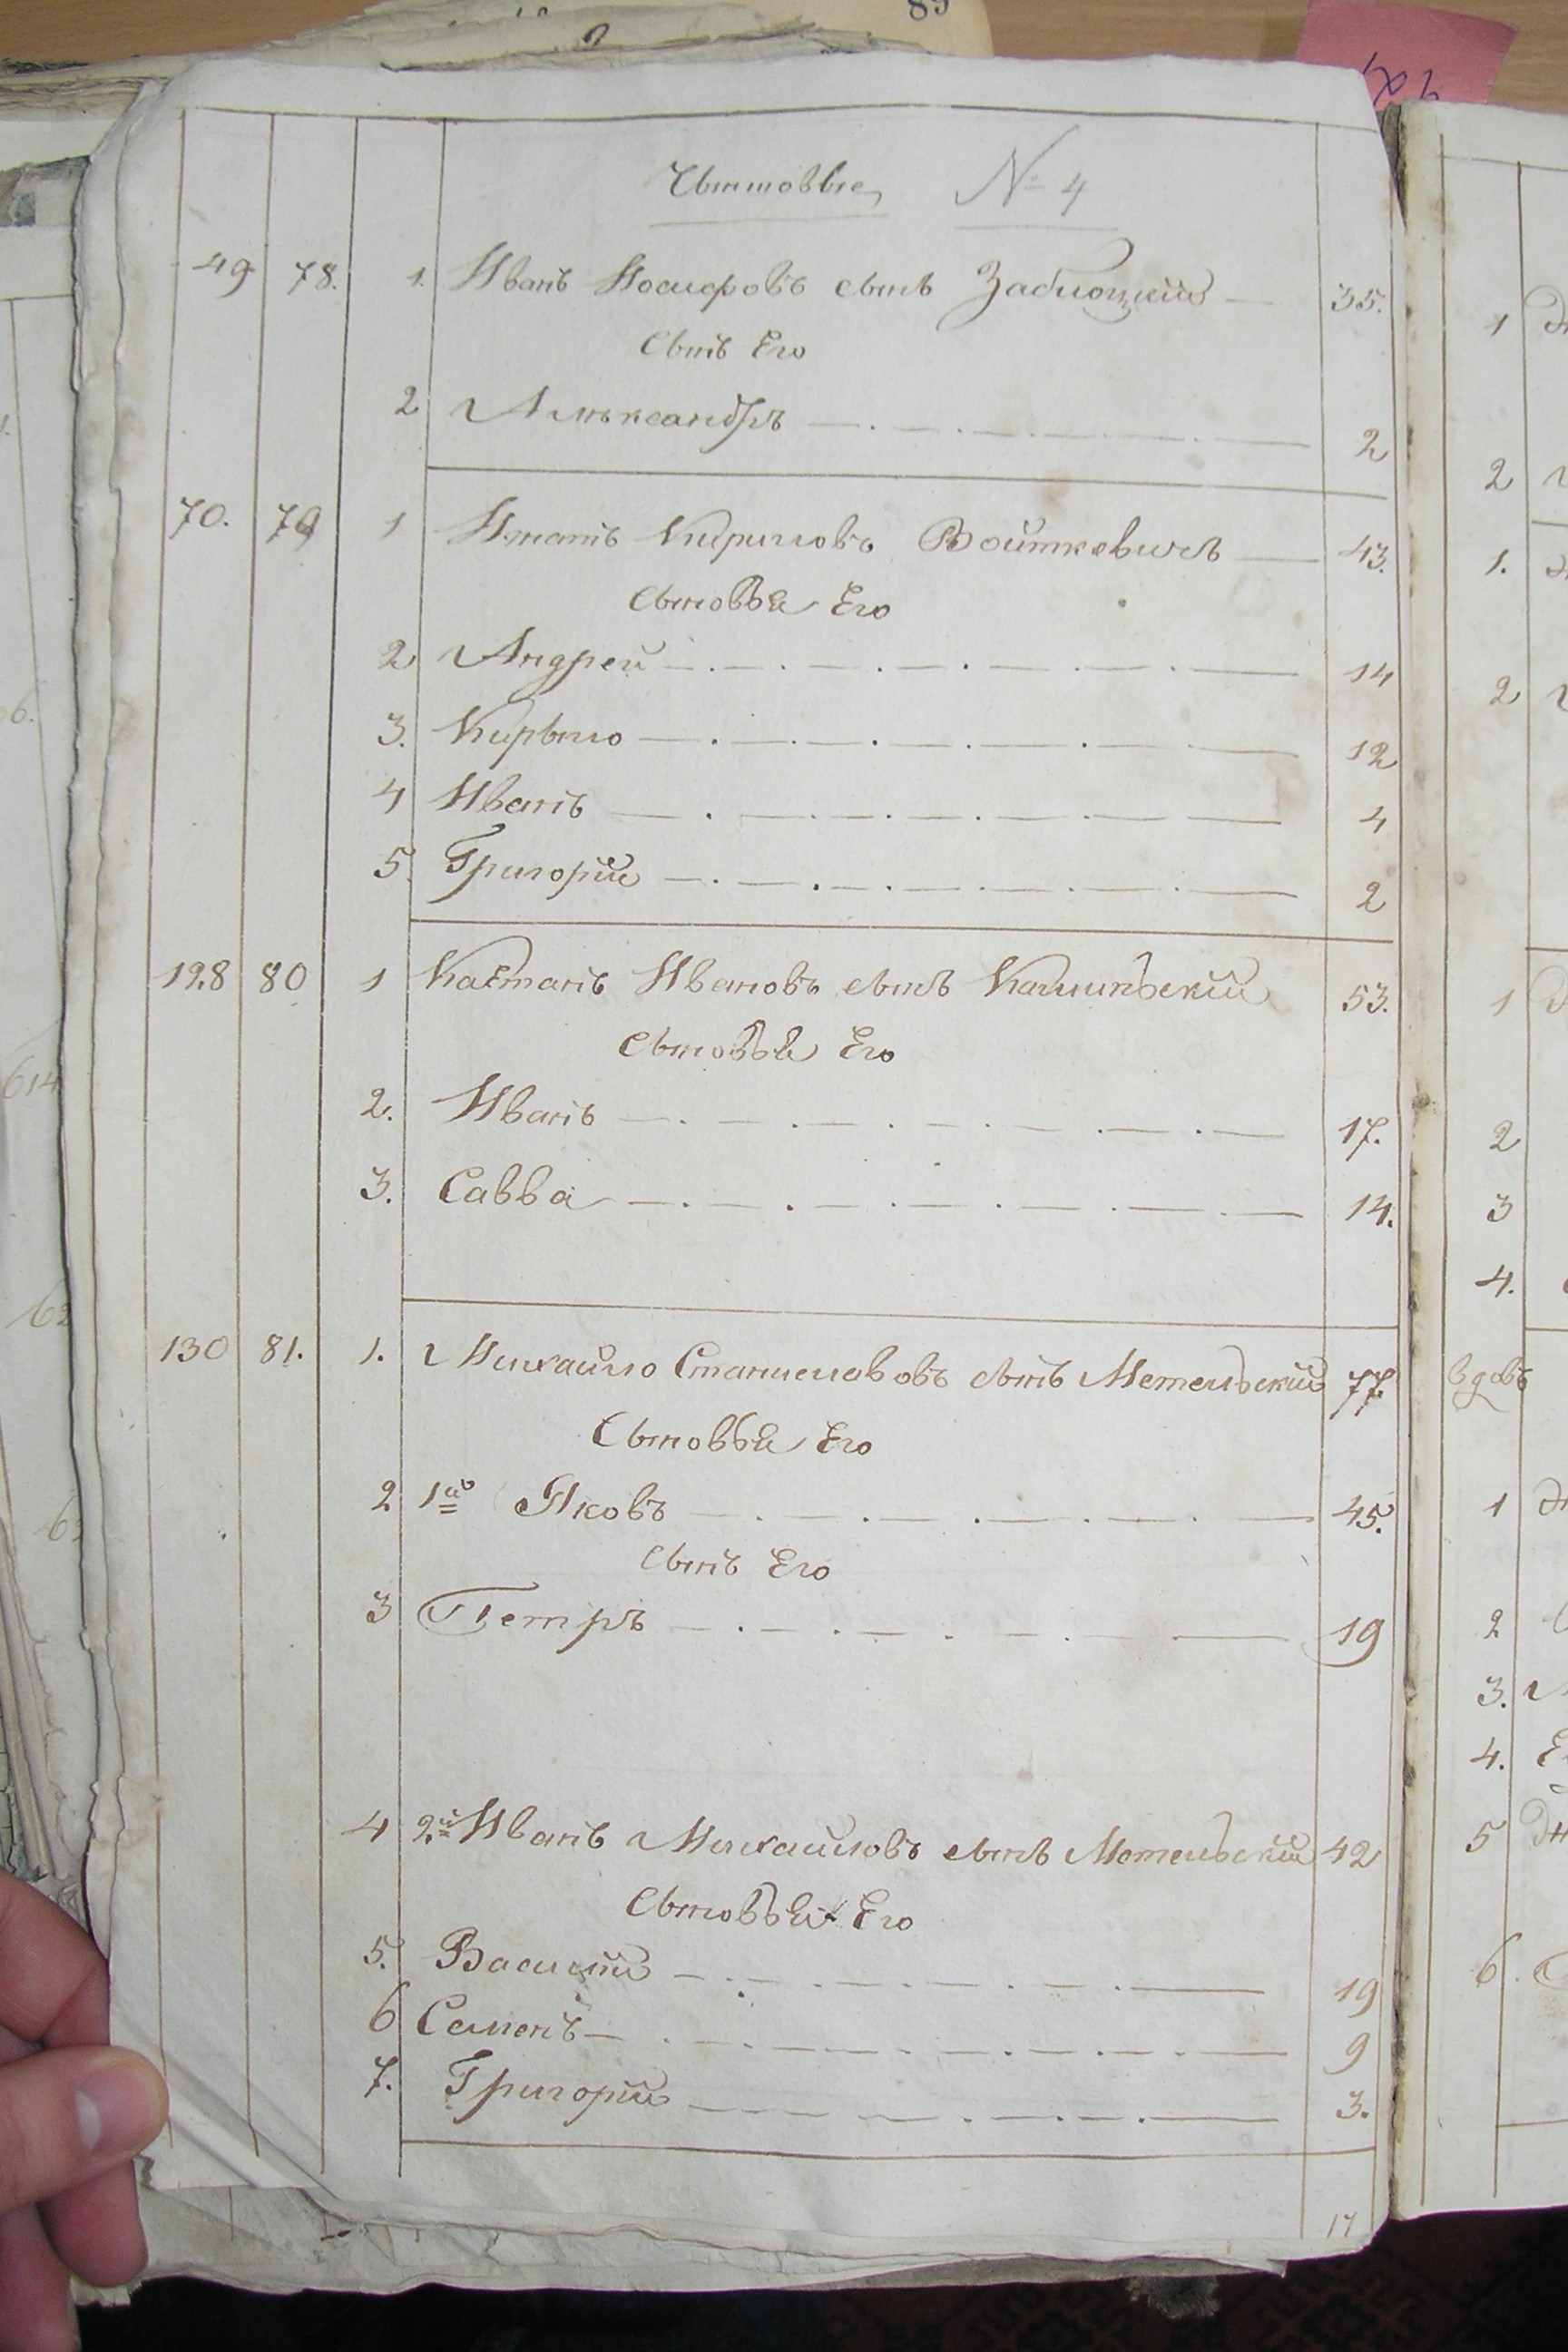 89
Чыншовые № 4
49 78. 1. Иванъ Іосифовъ сынъ Заблоцкій 35.
Сынъ Его
2 Альександръ 2
70. 79 1 Игнатъ Кириловъ Войткевичъ 43.
Сыновья Его
2 Андрей 14
3. Кирыло 12
4 Иванъ 4
5 Григорій 2
128 80 1 Каетанъ Ивановъ сынъ Калиновскій 53.
Сыновья Его
2. Иванъ 17.
3. Савва 14.
130 81. 1. Михайло Станиславовъ сынъ Метельскій 77
Сыновья Его
2 1й Яковъ 45.
Сынъ Его
3 Петръ 19
4 2й Иванъ Михайловъ сынъ Метельскій 42
Сыновья Его
5. Василій 19
6 Семенъ 9
7. Григорій 3.
17
1
2
1.
2
1
2
3
4.
вдовъ
1
2
3.
4.
5
6.